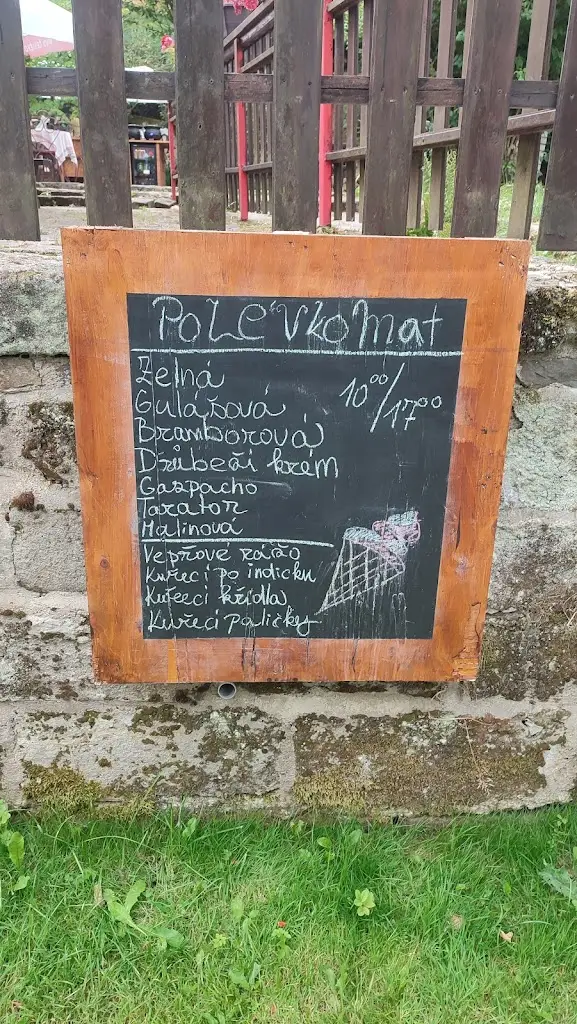 PoLévkomat
Zelná
10⁰⁰/17⁰⁰
Gulášová
Bramborová
Drůbeží krém
Gazpacho
Tarator
Malinová
Vepřové rážo
Kuřecí po indicku
Kuřecí křídla
Kuřecí paličky